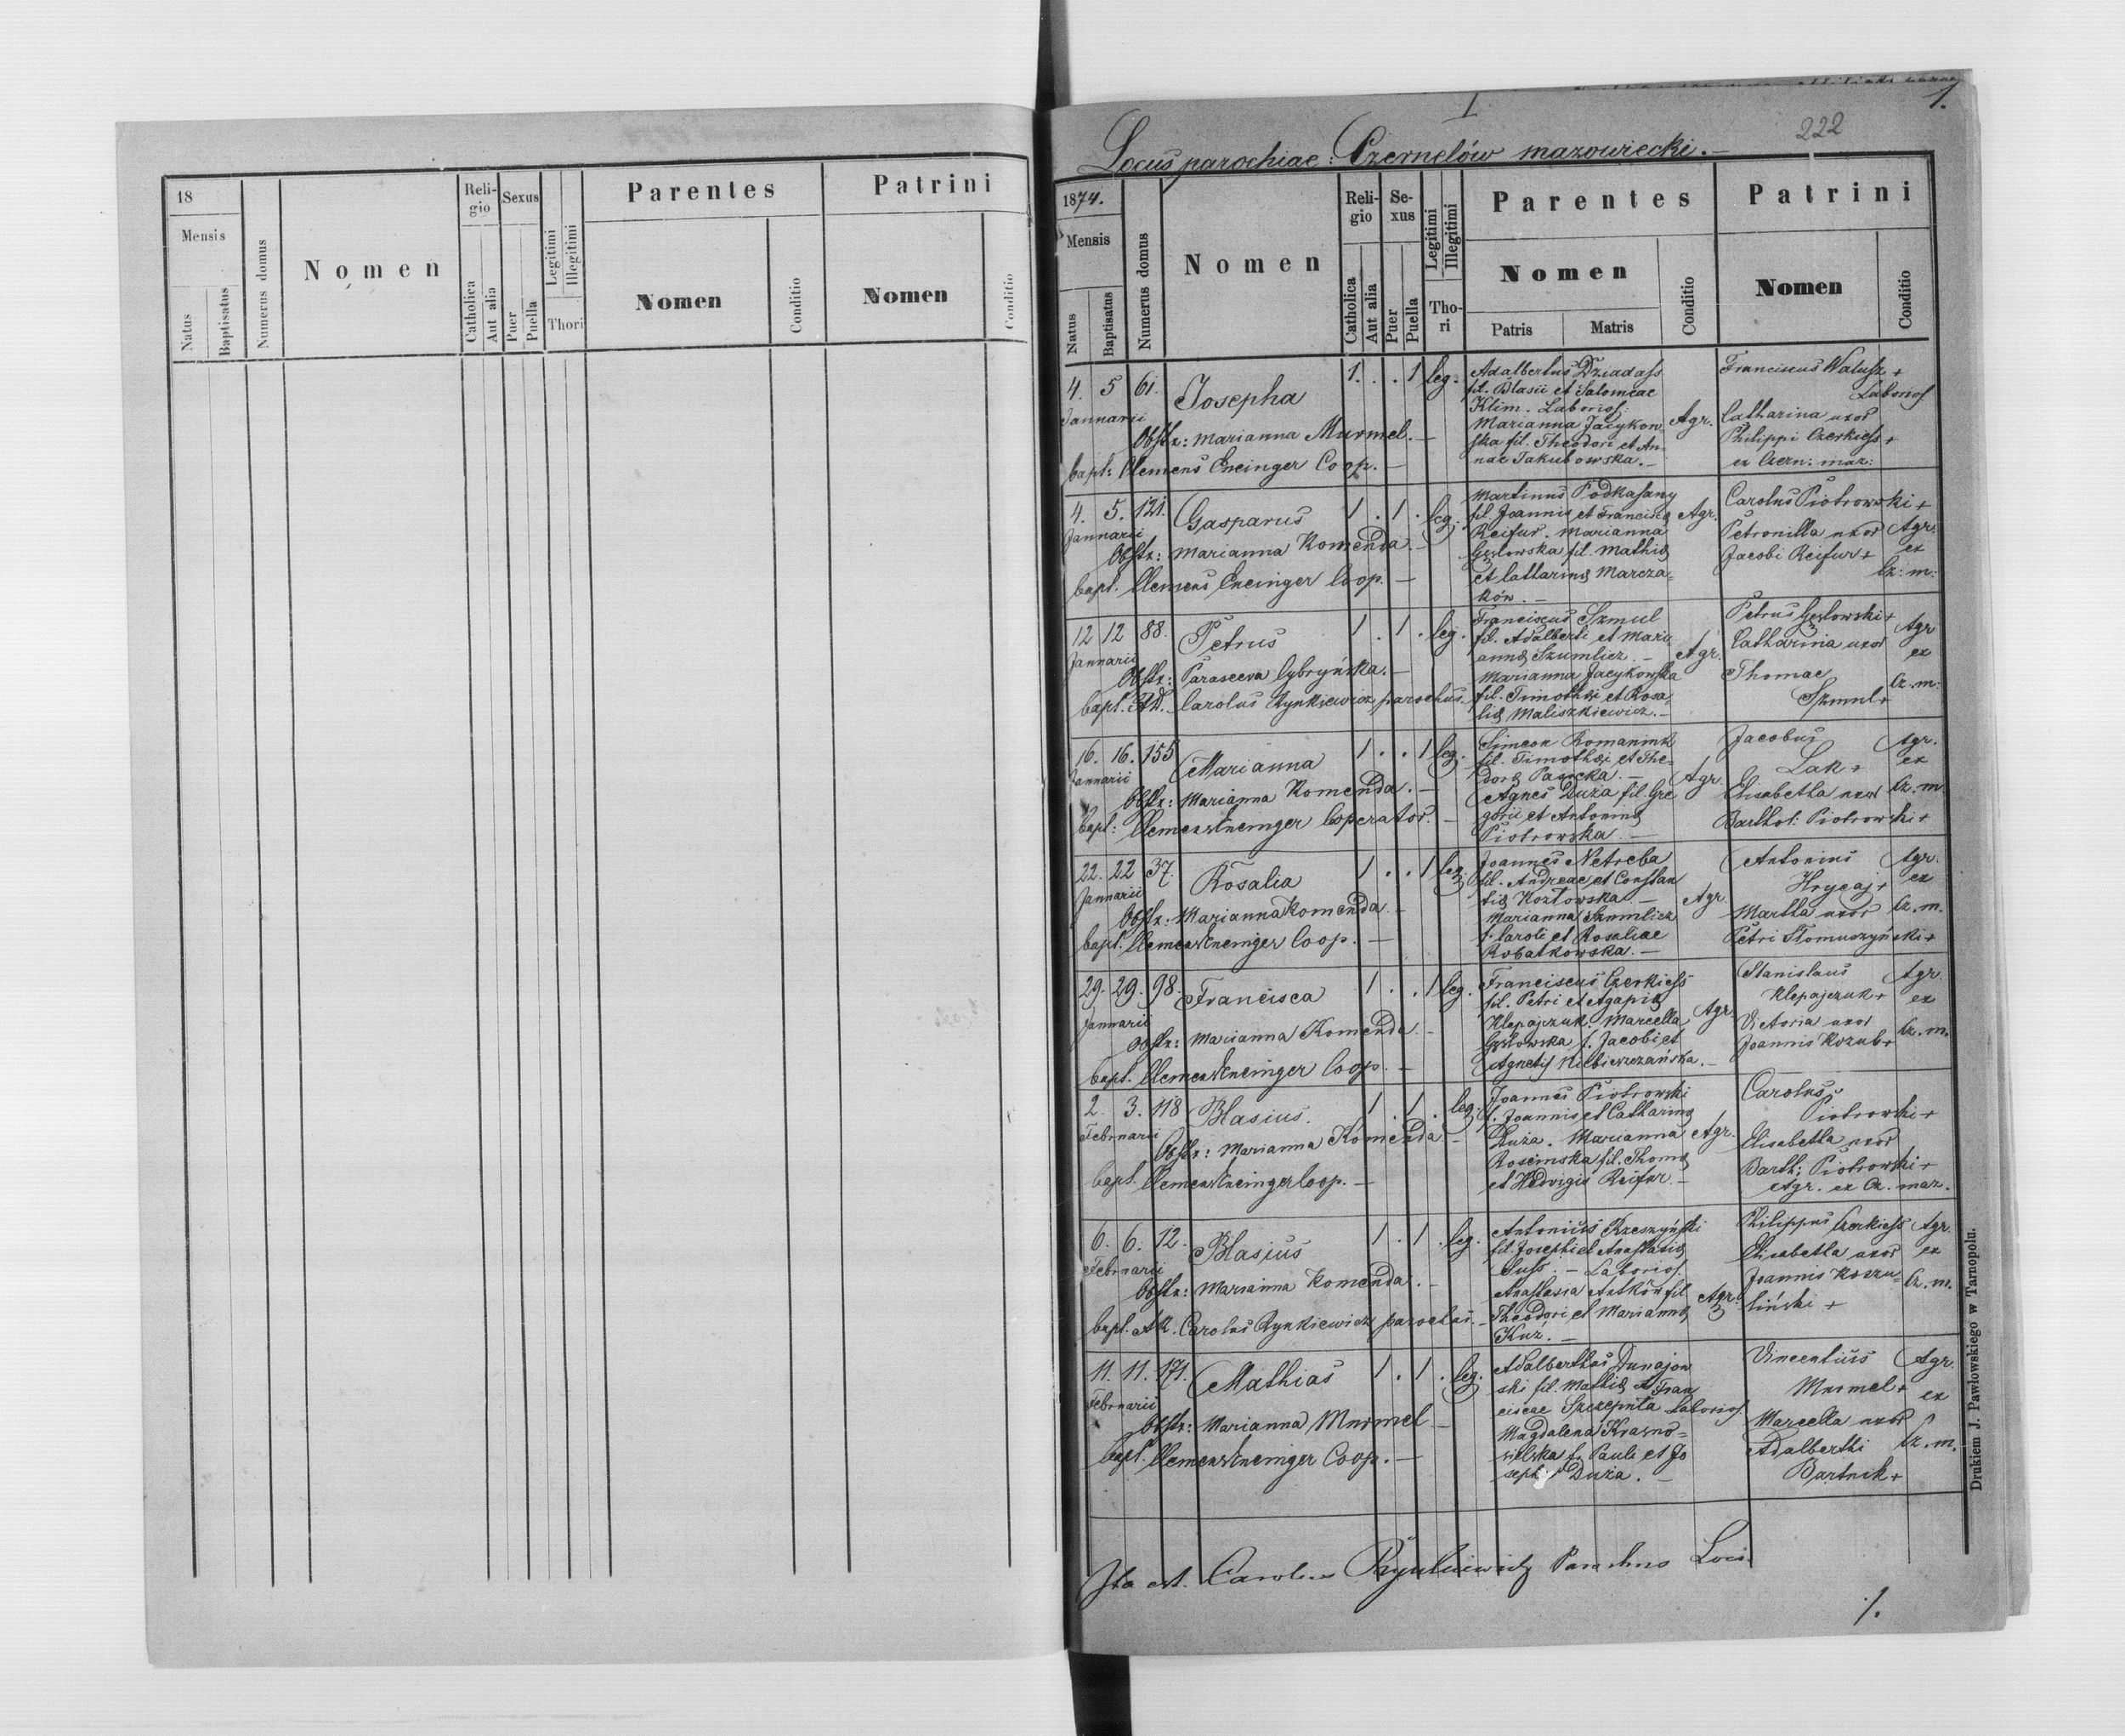 18
Mensis
Natus
Baptisatus
Numerus domus
Nomen
Religio
Catholica
Aut alia
Sexus
Puer
Puella
Legitimi
Illegitimi
Thori
Parentes
Nomen
Conditio
Patrini
Nomen
Conditio
I
1.
222
Locus parochiae: Czernelów mazowiecki.
1874.
Mensis
Natus
Baptisatus
Numerus domus
Nomen
Reli-
gio
Catholica
Aut alia
Se-
xus
Puer
Puella
Legitimi
Illegitimi
Tho-
ri
Parentes
Nomen
Patris
Matris
Conditio
Patrini
Nomen
Conditio
4. 5 61. Josepha 1. . . 1 leg.
Januarii
Obstr: Marianna Murmel. —
bapt: Clemens Eneinger Coop. —
Adalbertus Dziadass
fil. Blasii et Salomeae
Klim. Laborios.
Marianna Jacykow
ska fil. Theodori et An-
nae Jakubowska. —
Agr.
Franciscus Walusz +
Laborios
Catharina uxor
Philippi Czerkiess +
ex Czern. maz:
4. 5. 121. Gasparus 1 . 1 . leg.
Januarii
Obstr: Marianna Komenda. —
bapt. Clemens Eneinger Coop. —
Martinus Podkasany
fil. Joannis et Francisca
Reifur. Marianna
Gęsłowska fil. Mathia
et Catharina Marcza-
ków. —
Agr.
Carolus Piotrowski +
Petronilla uxor
Jacobi Reifur +
Agr. ex
Cz: m:
12 12 88. Petrus 1 . 1 . leg.
Januarii
Obstr: Parasceva Cybryńska. —
bapt. AR. Carolus Rynkiewicz parochus.
Franciscus Szmul
fil. Adalberti et Mari
anna Szumlicz. —
Marianna Jacykowska
fil. Timothei et Rosa
lia Maliszkiewicz. —
Agr.
Petrus Gęsłowski +
Catharina uxor
Thomae
Szmul +
Agr
ex
Cz. m:
16. 16. 155 Marianna 1 . . 1 leg.
Januarii
Obstr: Marianna Komenda. —
bapt: Clemens Eneinger Cooperator. —
Simeon Romaniuk
fil. Timothei et The-
dora Pasicka. —
Agnes Duża fil. Gre
gorii et Antonina
Piotrowska —
Agr.
Jacobus
Lak +
Elisabetha uxor
Barthol: Piotrowski +
Agr.
ex
Cz. m
22. 22 37. Rosalia 1 . . 1 leg.
Januarii
Obstr: Marianna Komenda. —
bapt. Clemens Eneinger Coop. —
Joannes Netreba
fil. Andreae et Constan
tia Kozłowska —
Marianna Szumlicz
f. Caroli et Rosaliae
Robatkowska. —
Agr.
Antonius
Hrycaj +
Martha uxor
Petri Tłomuszyński +
Agr.
ex
Cz. m.
29. 29. 98. Francisca 1 . . 1 leg.
Januarii
obstr: Marianna Komenda. —
bapt. Clemens Eneinger Coop. —
Franciscus Czerkiess
fil. Petri et Agapia
Klepajczuk. Marcella
Gęsłowska f. Jacobi et
Agnetis —
Agr.
Stanislaus
Klepajczuk +
Victoria uxor
Joannis Kozub +
Agr.
ex
Cz. m.
2. 3. 118 Blasius. 1 . 1 . leg.
Februarii
Obstr: Marianna Komenda —
bapt. Clemens Eneinger Coop. —
Joannes Piotrowski
f. Joannis et Catharina
Duża. Marianna
Rosimska fil. Thoma
et Hedvigis Reifur —
Agr.
Carolus
Piotrowski +
Elisabetha uxor
Barth: Piotrowski +
Agr. ex Cz. maz.
6. 6. 12. Blasius 1 . 1 . leg.
Februarii
Obstr: Marianna Komenda. —
bapt. AR. Carolus Rynkiewicz parochus. —
Antonius Rzeszyński
fil. Josephi et Anastasia
Suss. — Laborios.
Anastasia Antków fil
Theodori et Marianna
Kuź. —
Agr.
Philippus Czerkiess
Elisabetha uxor
Joannis Koszu-
liński +
Agr.
ex
Cz. m.
11. 11. 171. Mathias 1 . 1 . leg.
Februarii
obstr: Marianna Murmel —
bapt. Clemens Eneinger Coop. —
Adalbertus Dunajow
ski fil. Mathia et Fran
ciscae Szczepula
Magdalena Krasno-
sielska f. Pauli et Jo
seph Duża. —
Laborios.
Vincentius
Murmel +
Marcella uxor
Adalberthi
Bartnik +
Agr.
ex
Cz. m.
Ita est. Carolus Rynkiewicz Parochus Loci.
1.
Drukiem J. Pawłowskiego w Tarnopolu.